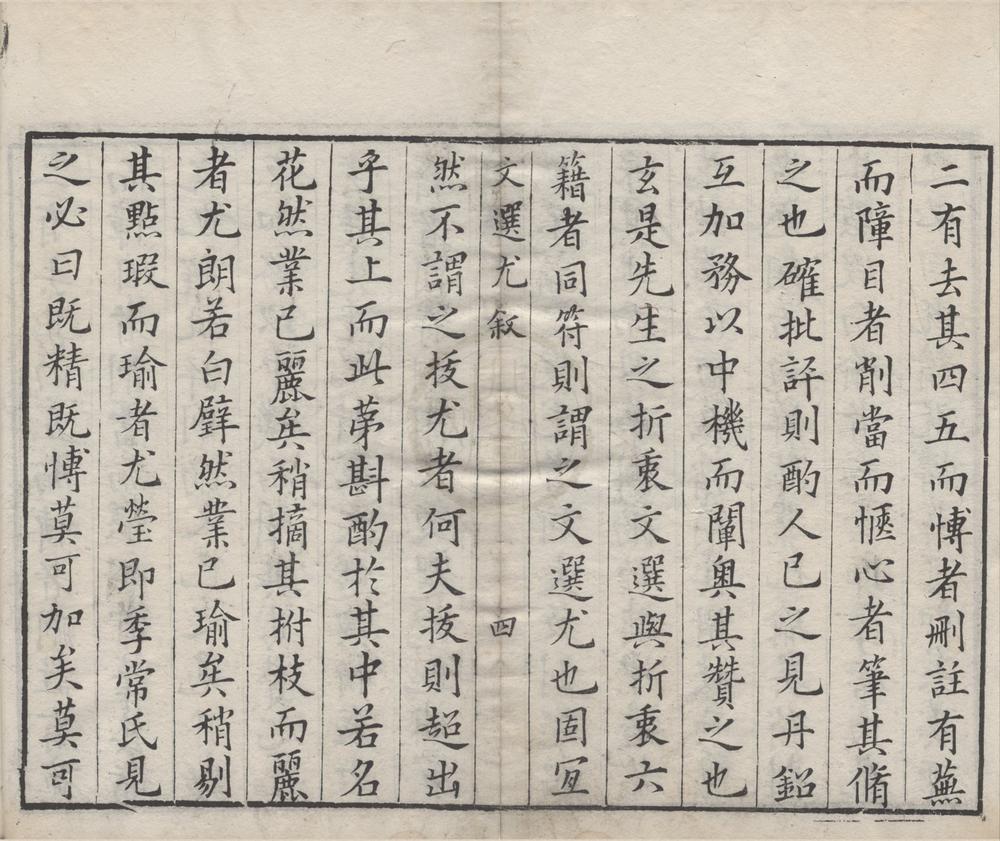 二有去其四五而愽者刪註有蕪
而障目者削當而愜心者筆其脩
之也確批評則酌人已之見丹鉛
互加務以中機而闡奥其贊之也
玄是先生之折衷文選與折衷六
籍者同符則謂之文選尤也固宐
文選尤叙 四
然不謂之㧞尤者何夫㧞則超出
乎其上而此苐斟酌於其中若名
花然業已麗矣稍摘其拊枝而麗
者尤朗若白璧然業已瑜矣稍剔
其㸃瑕而瑜者尤瑩即季常氏見
之必曰既精既愽莫可加矣莫可